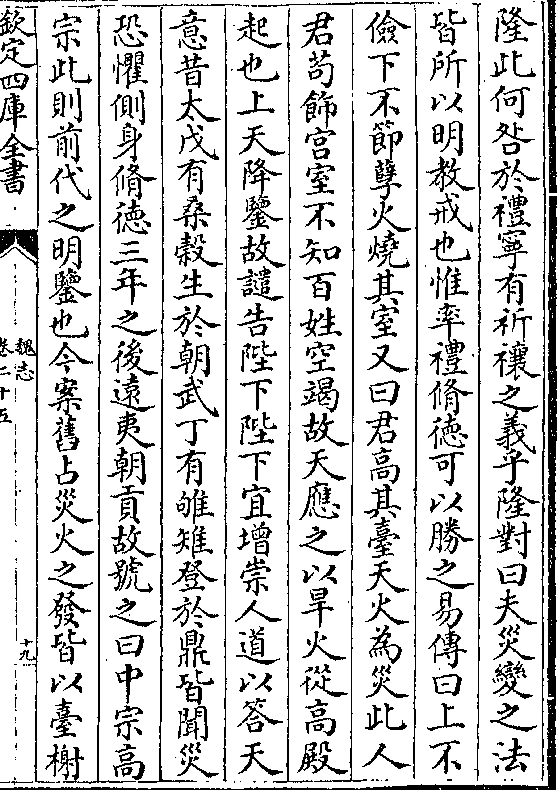 隆此何咎於禮寧有祈禳之義乎隆對曰夫災變之法
皆所以明教戒也惟率禮脩徳可以勝之易傳曰上不
儉下不節孽火燒其室又曰君高其臺天火為災此人
君茍飾宫室不知百姓空竭故天應之以旱火從高殿
起也上天降鑒故譴告陛下陛下宜增崇人道以答天
意昔太戊有桑榖生於朝武丁有雊雉登於鼎皆聞災
恐懼側身脩徳三年之後遠夷朝貢故號之曰中宗高
宗此則前代之明鑒也今案舊占災火之發皆以臺榭
欽定四庫全書
魏志
卷二十五
十九